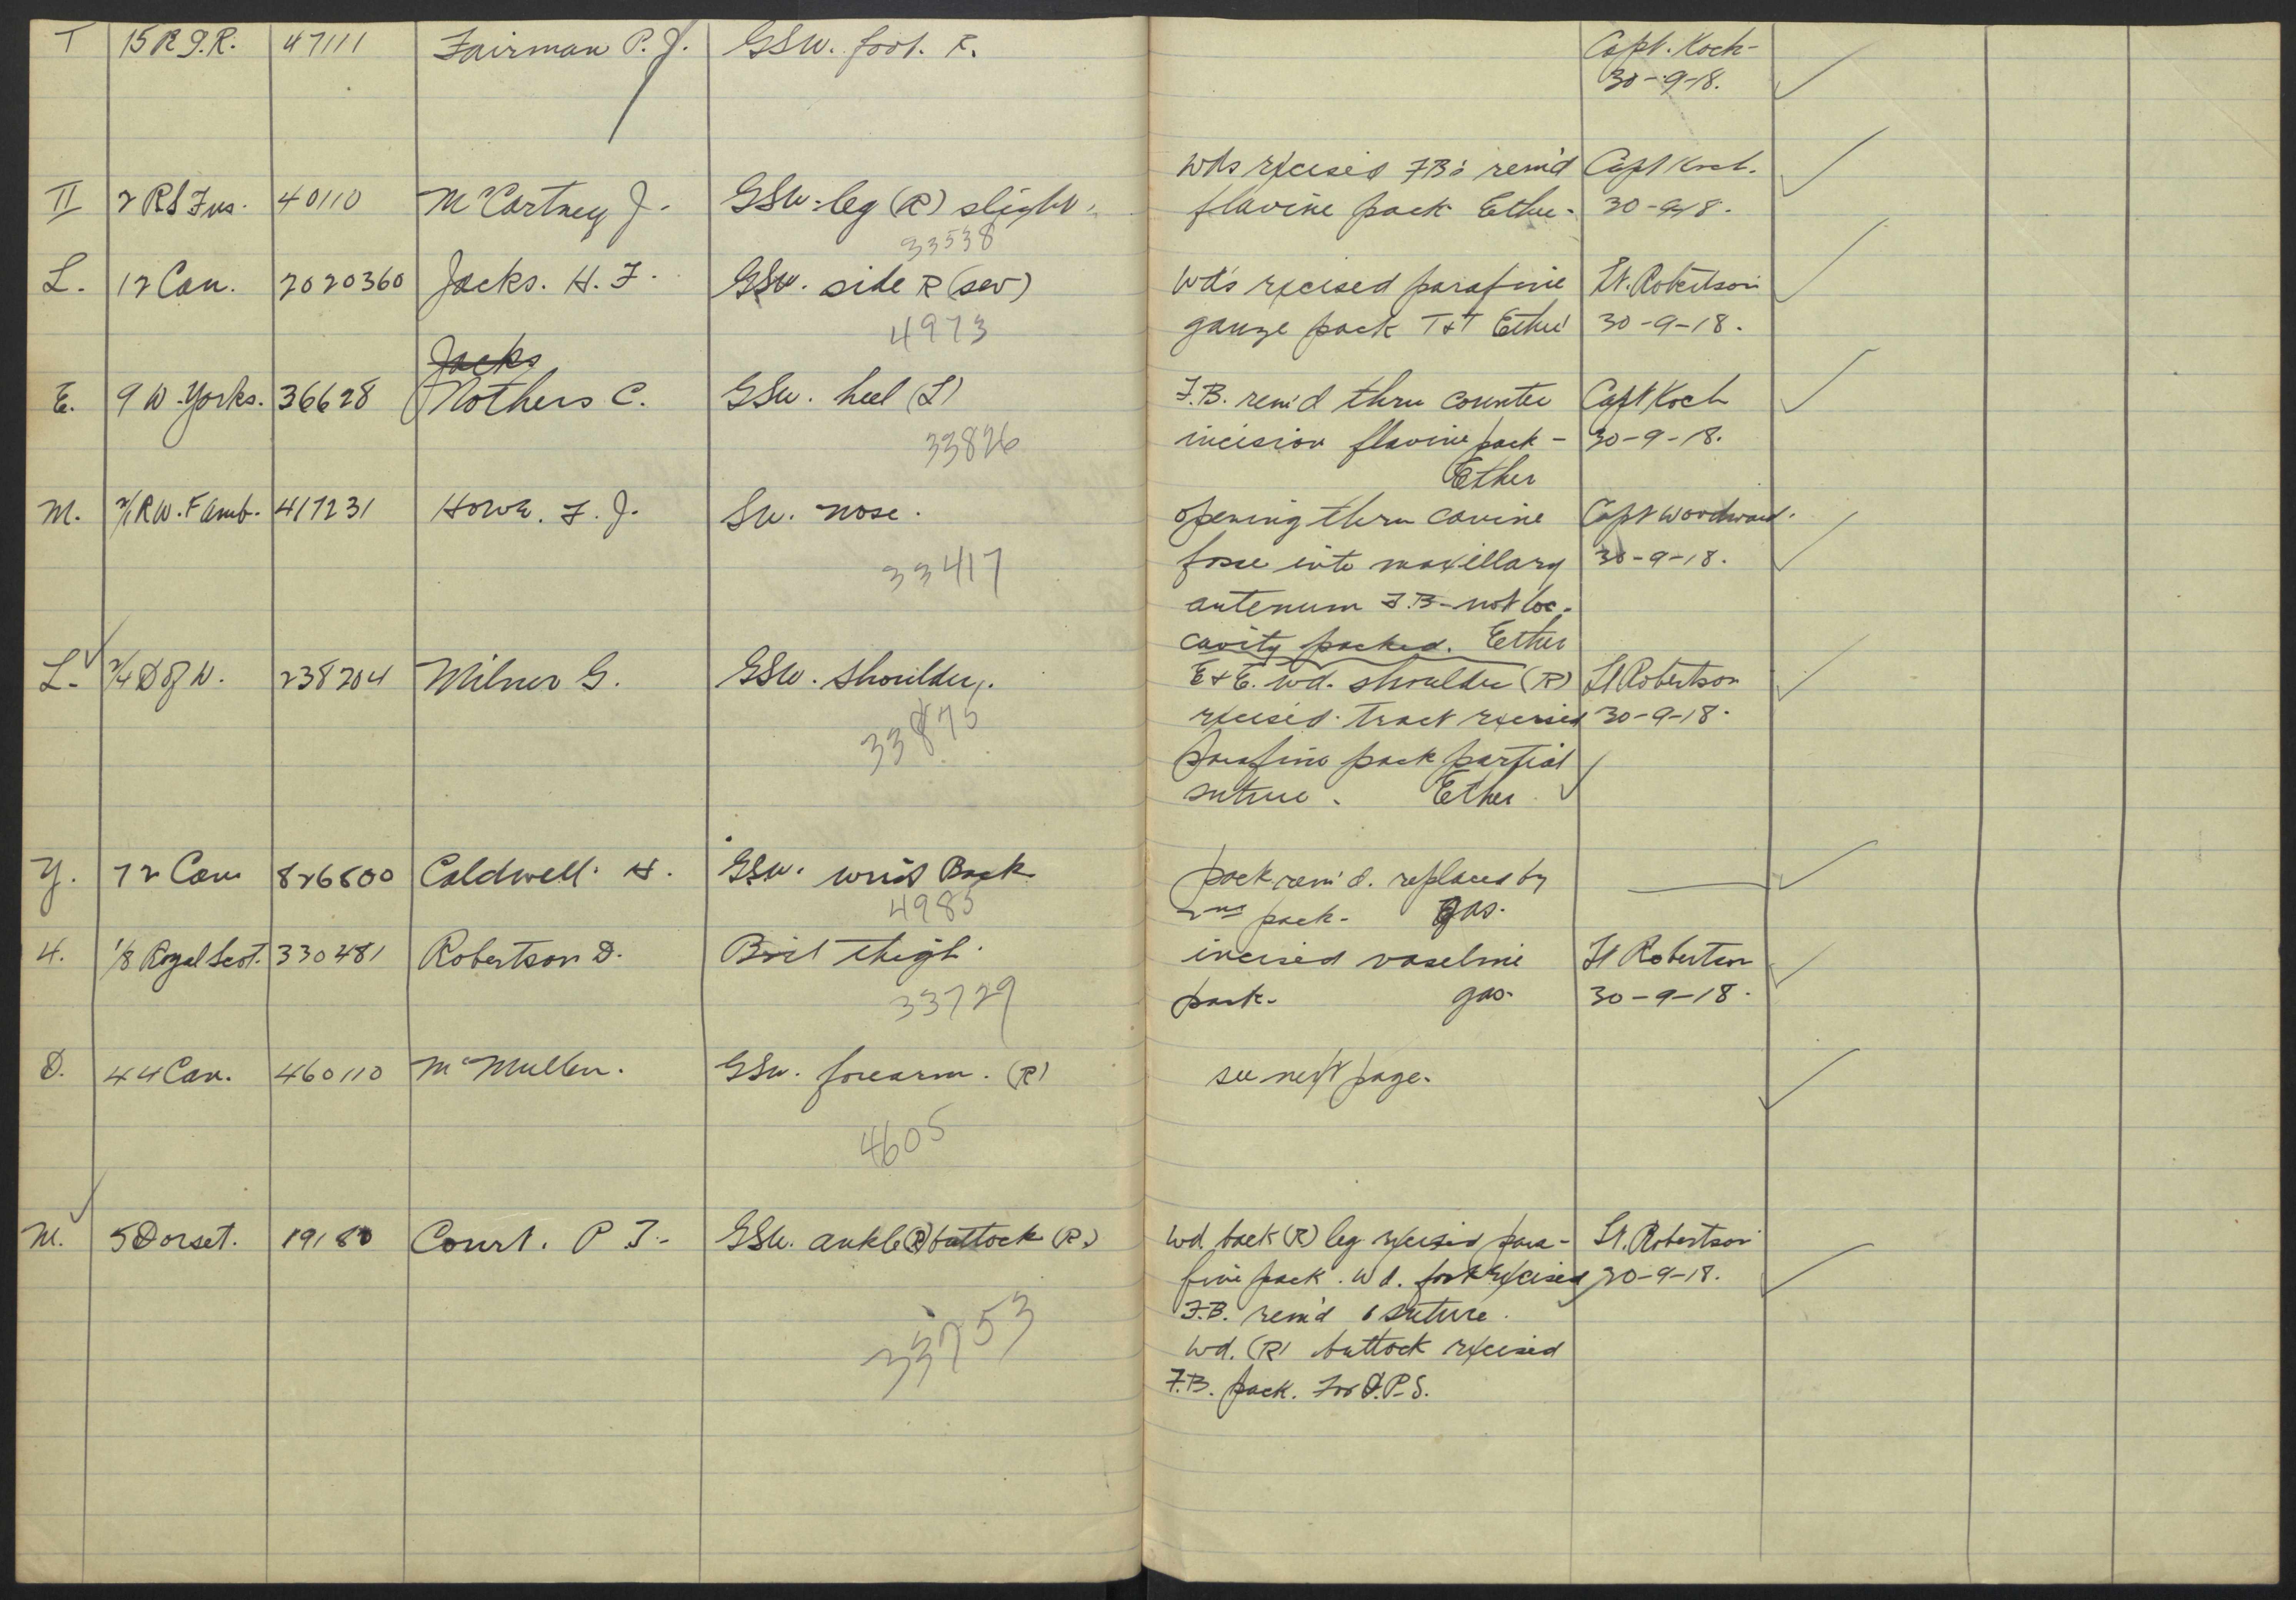 T 15 R I.R. 47111 Fairman P. J. GSW. foot. R. Capt. Koch-
30-9-18.
wds excised FB's rem'd Capt Koch.
II 2 RS Fus. 40110 McCartney J. GSW. leg (R) slight. flavine pack Ether. 30-9-18.
33538
L. 12 Can. 2020360 Jacks. H. F. GSW. side R (sev) Wds excised parafine Lt. Robertson
4973 gauze pack T+T Ether 30-9-18.
Jacks
E. 9 W. Yorks. 36628 Mothers C. GSW. heel (L) F.B. rem'd thru counter Capt Koch
33826 incision flavine pack - 30-9-18.
Ether
M. 2/1 RW. F Amb. 417231 Howe. F. J. SW. nose. opening thru canine Capt Woodward.
33417 fosse into maxillary 30-9-18.
antenum F.B. not loc.
cavity packed. Ether
L. 2/4 D of W. 238204 Milner G. GSW. Shoulder. E+E. wd. shoulder (R) Lt Robertson
33875 excised. Tract excised 30-9-18.
parafine pack partial
suture. Ether
Y. 72 Can 826800 Caldwell. H. GSW. wrist Back pack rem'd. replaced by
4985 2nd pack- gas.
H. 1/8 Royal Scot. 330481 Robertson D. Boil thigh incised vaseline Lt Robertson
33729 pack- gas- 30-9-18.
D. 44 Can. 460110 McMullen. GSW. forearm. (R) see next page.
4605
M. 5 Dorset. 19180 Court. P T.- GSW. ankle (R) buttock (R) Wd. back (R) leg excised para- Lt. Robertson
fine pack. Wd. foot excised 30-9-18.
33753 F.B. rem'd suture.
Wd. (R) buttock excised
F.B. pack. For D.P.S.